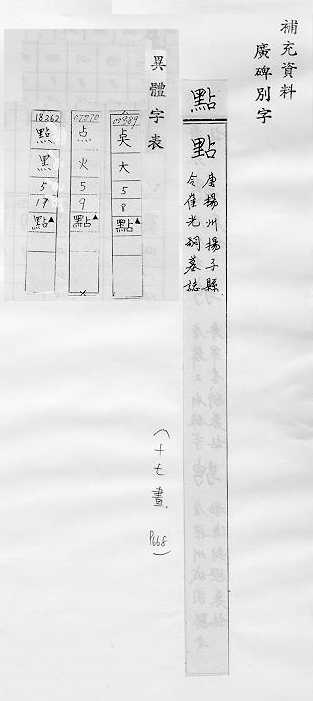 補充資料
廣碑別字
點
點
唐揚州揚子縣
令崔光嗣墓誌
異體字表
奌
大
5
8
點▲
点
火
5
9
點▲
18262
黑
5
17
點▲
(十七畫 P668)